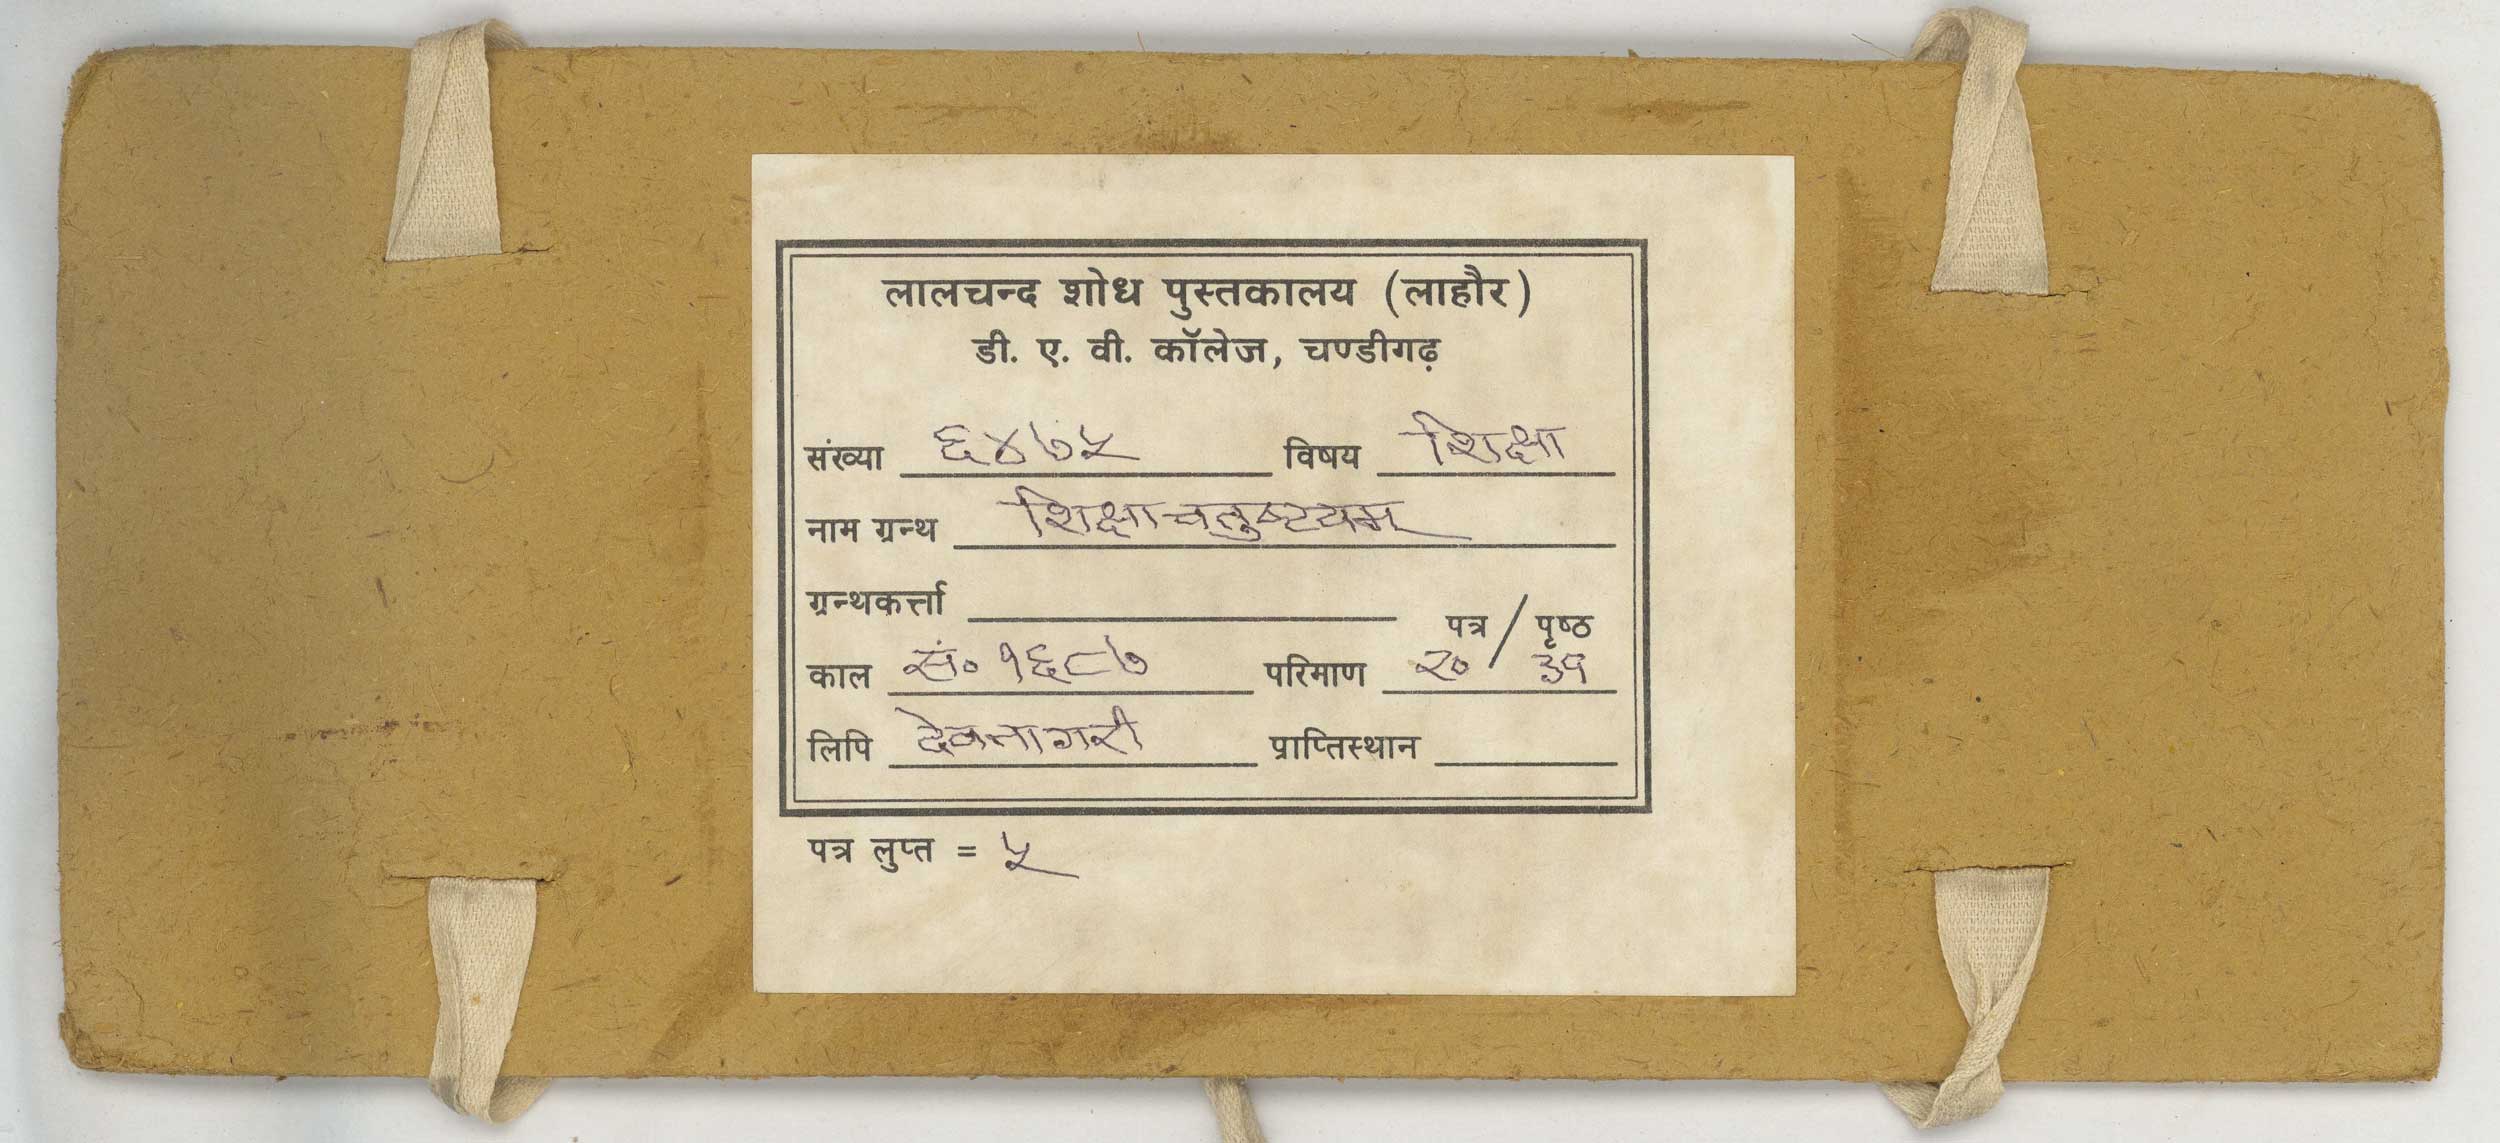 लालचन्द शोध पुस्तकालय (लाहौर)
डी. ए. वी. कॉलेज, चण्डीगढ़
संख्या ६४७५ विषय शिक्षा
नाम ग्रन्थ शिक्षाचतुष्टयम्
ग्रन्थकर्त्ता
पत्र / पृष्ठ
काल सं० १६८७ परिमाण २० / ३१
लिपि देवनागरी प्राप्तिस्थान
पत्र लुप्त = ५